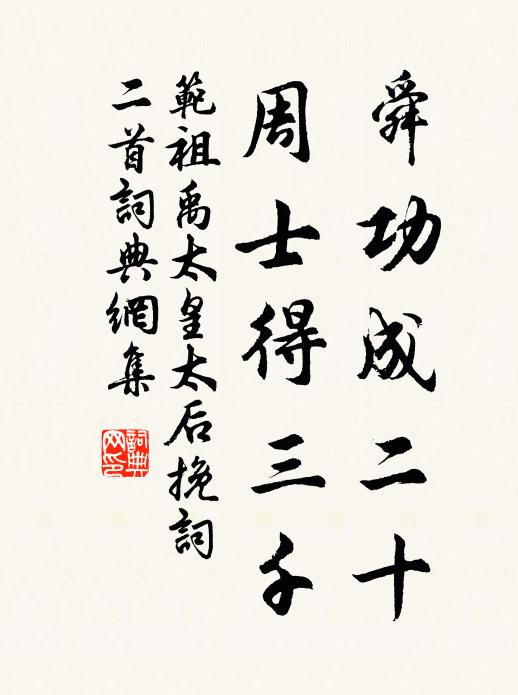 舜功成二十
周士得三千
範祖禹太皇太后挽詞
二首詞典網集
詞典
网印